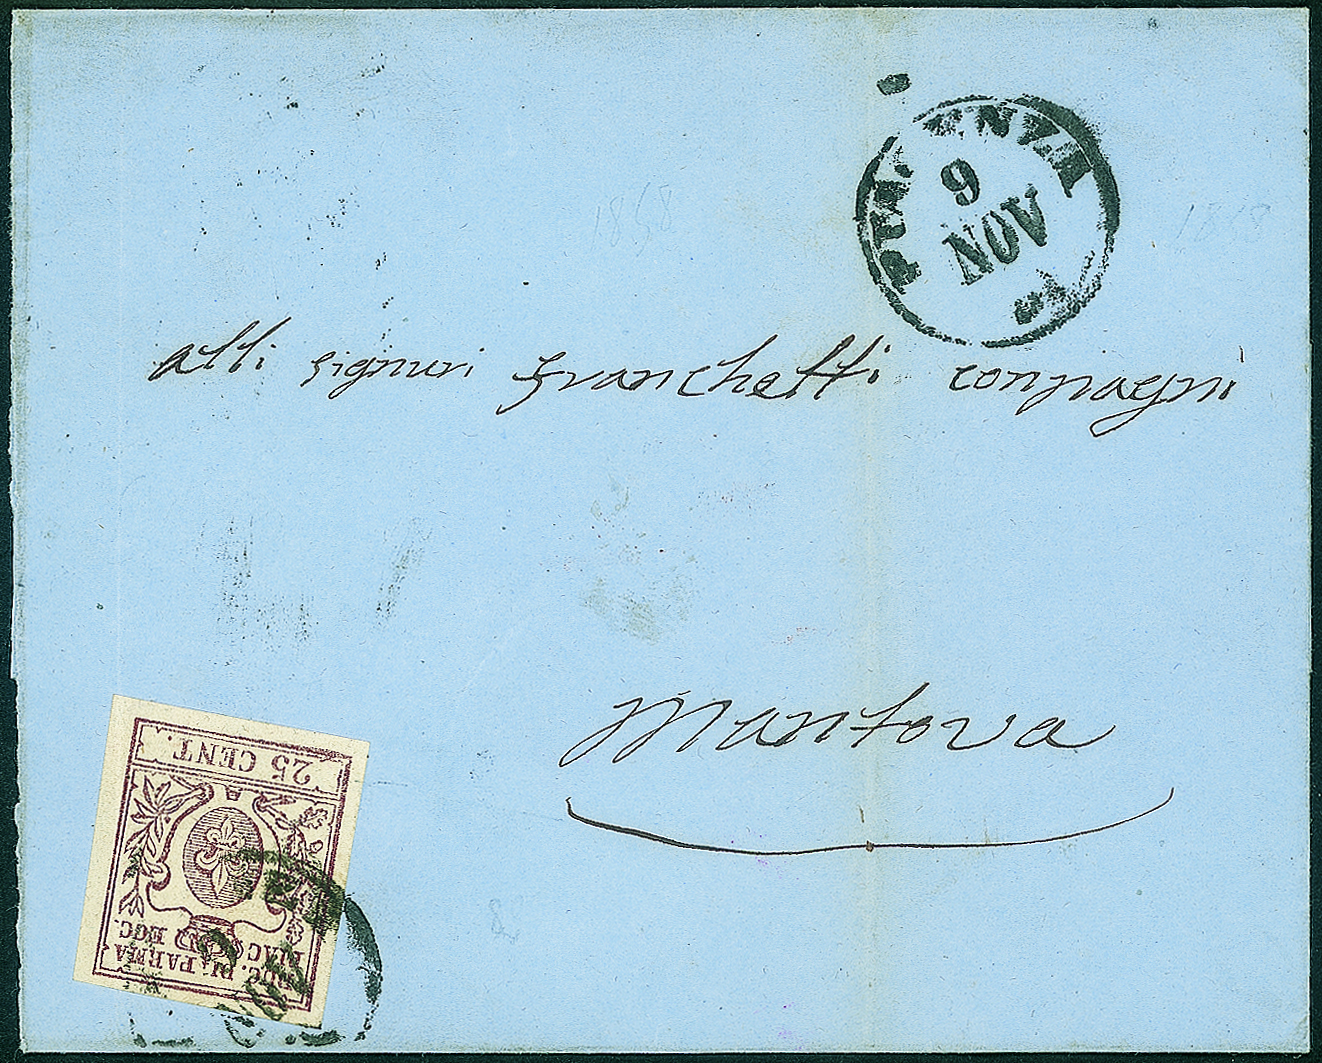 PIACENZA
9
NOV
1858
1858
alli signori Franchetti compagni
Mantova
25 CENT.
DUC. DI PARMA
PIAC. ECC.